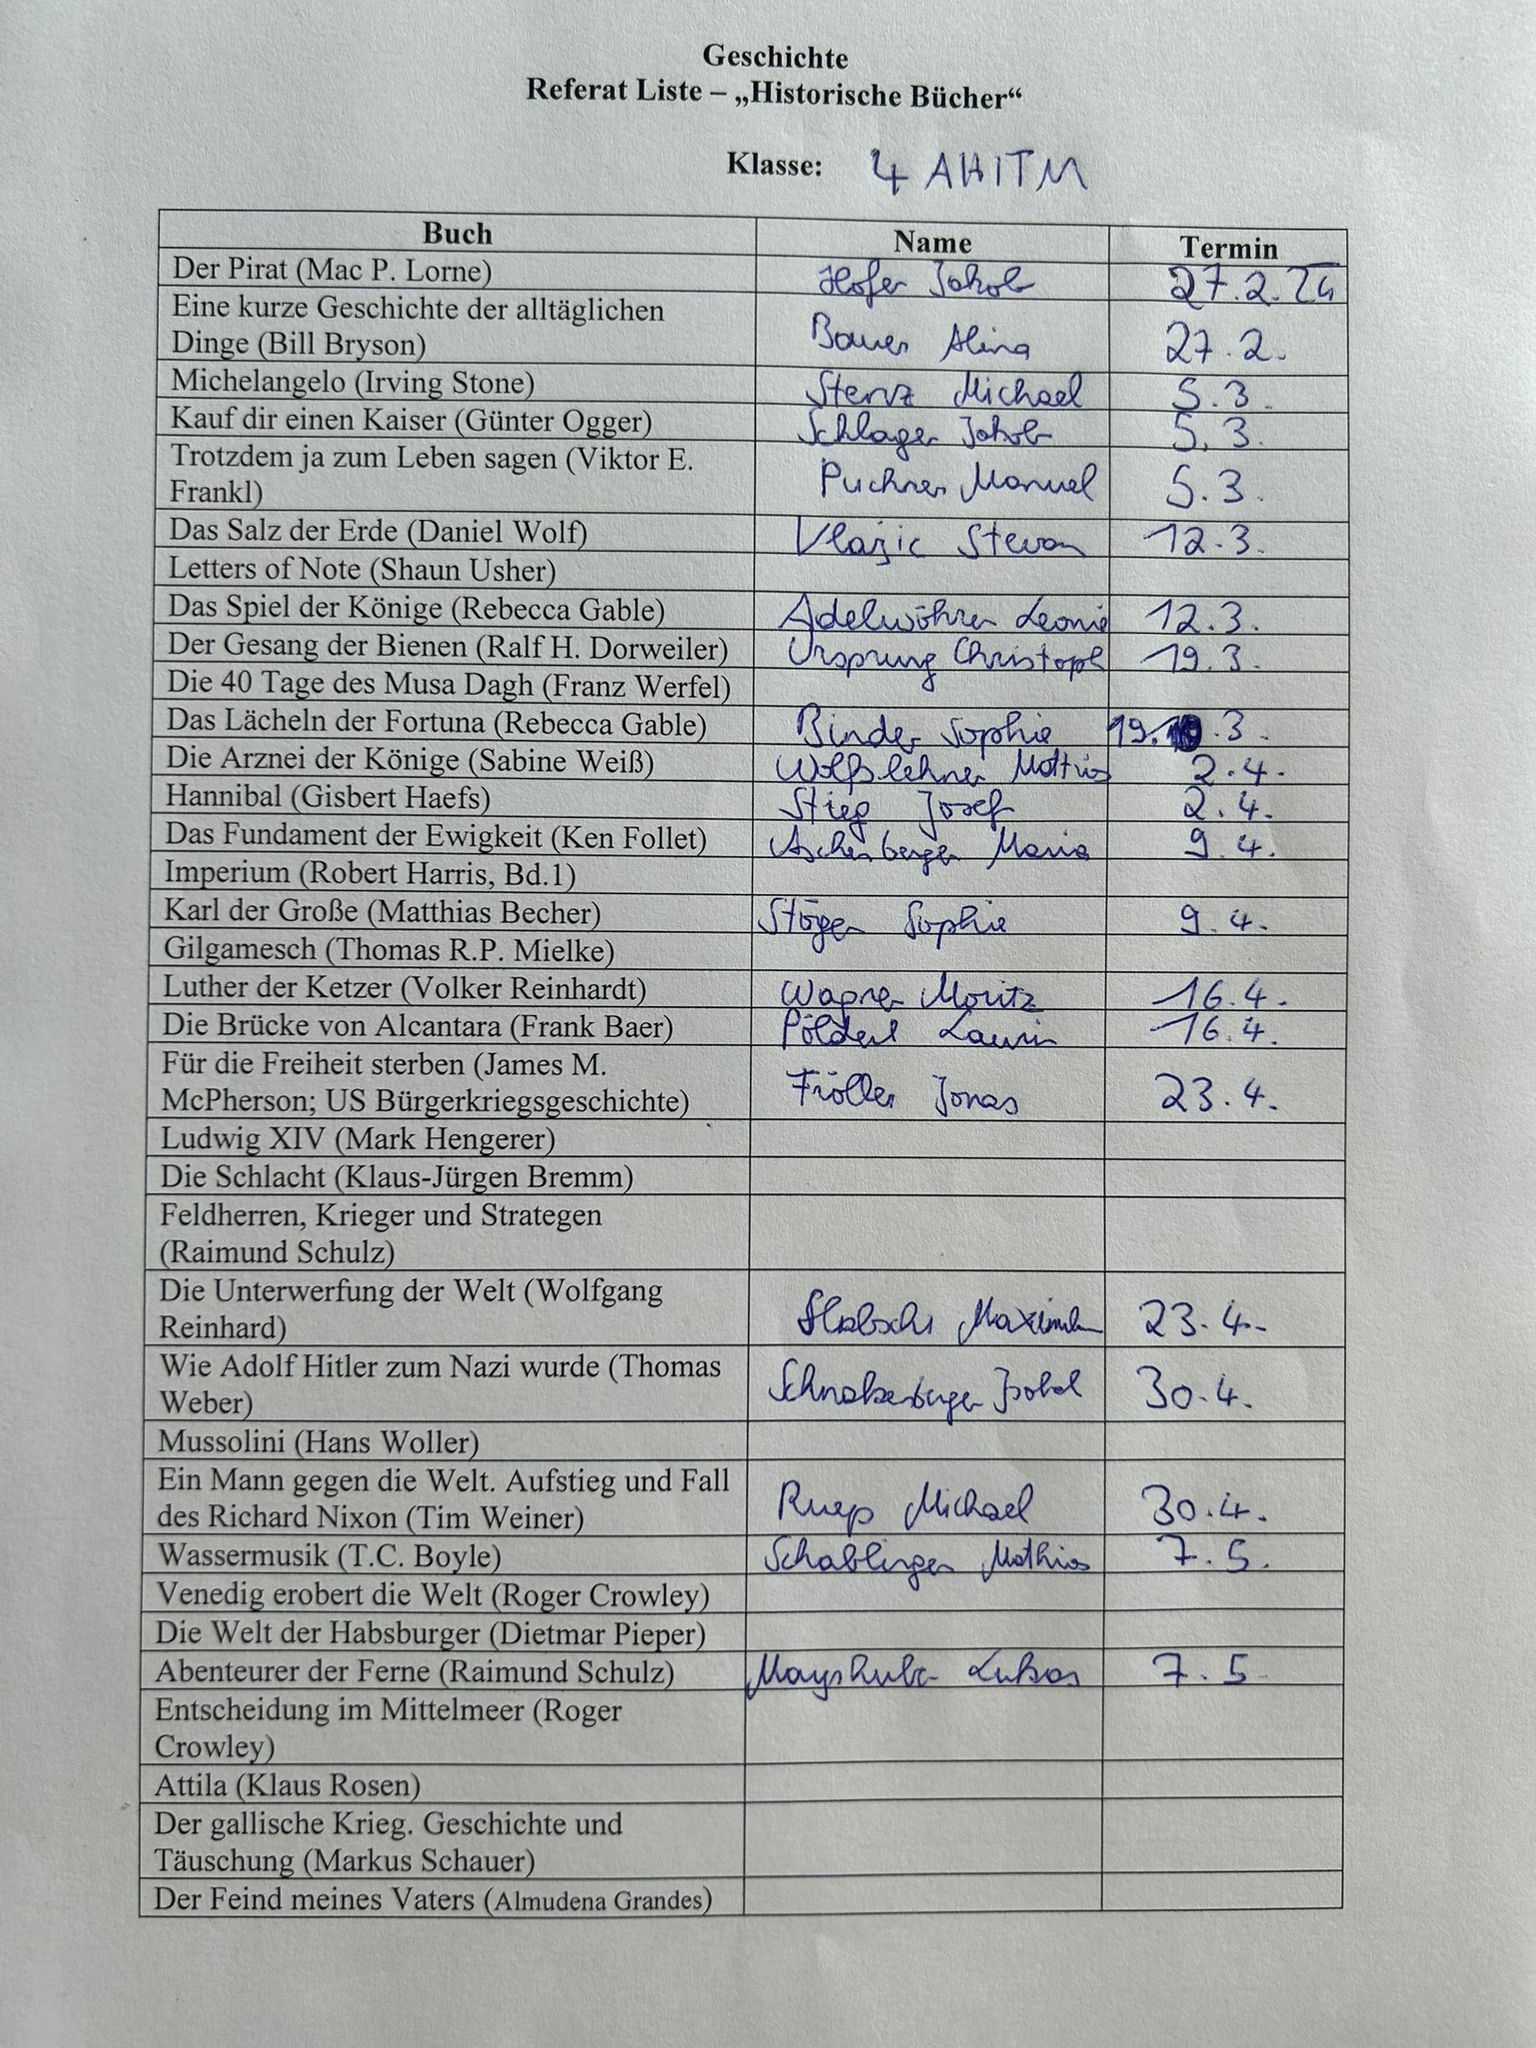 Geschichte
Referat Liste – „Historische Bücher“
Klasse: 4 AHITM
Buch Name Termin
Der Pirat (Mac P. Lorne) Hofer Jakob 27.2.24
Eine kurze Geschichte der alltäglichen
Dinge (Bill Bryson) Bauer Alina 27.2.
Michelangelo (Irving Stone) Stenz Michael 5.3.
Kauf dir einen Kaiser (Günter Ogger) Schlager Jakob 5.3.
Trotzdem ja zum Leben sagen (Viktor E.
Frankl) Puchner Manuel 5.3.
Das Salz der Erde (Daniel Wolf) Vlazic Stevan 12.3.
Letters of Note (Shaun Usher)
Das Spiel der Könige (Rebecca Gable) Adelwöhrer Leonie 12.3.
Der Gesang der Bienen (Ralf H. Dorweiler) Ursprung Christoph 19.3.
Die 40 Tage des Musa Dagh (Franz Werfel)
Das Lächeln der Fortuna (Rebecca Gable) Binder Sophie 19. .3.
Die Arznei der Könige (Sabine Weiß) Wolfslehner Mathias 2.4.
Hannibal (Gisbert Haefs) Stieg Josef 2.4.
Das Fundament der Ewigkeit (Ken Follet) Aschenberger Maria 9.4.
Imperium (Robert Harris, Bd.1)
Karl der Große (Matthias Becher) Stöger Sophie 9.4.
Gilgamesch (Thomas R.P. Mielke)
Luther der Ketzer (Volker Reinhardt) Wagner Moritz 16.4.
Die Brücke von Alcantara (Frank Baer) Pölderl Laurin 16.4.
Für die Freiheit sterben (James M.
McPherson; US Bürgerkriegsgeschichte) Fröller Jonas 23.4.
Ludwig XIV (Mark Hengerer)
Die Schlacht (Klaus-Jürgen Bremm)
Feldherren, Krieger und Strategen
(Raimund Schulz)
Die Unterwerfung der Welt (Wolfgang
Reinhard) 23.4.
Wie Adolf Hitler zum Nazi wurde (Thomas
Weber) 30.4.
Mussolini (Hans Woller)
Ein Mann gegen die Welt. Aufstieg und Fall
des Richard Nixon (Tim Weiner) Ruep Michael 30.4.
Wassermusik (T.C. Boyle) Schablinger Mathias 7.5.
Venedig erobert die Welt (Roger Crowley)
Die Welt der Habsburger (Dietmar Pieper)
Abenteurer der Ferne (Raimund Schulz) Lukas 7.5
Entscheidung im Mittelmeer (Roger
Crowley)
Attila (Klaus Rosen)
Der gallische Krieg. Geschichte und
Täuschung (Markus Schauer)
Der Feind meines Vaters (Almudena Grandes)